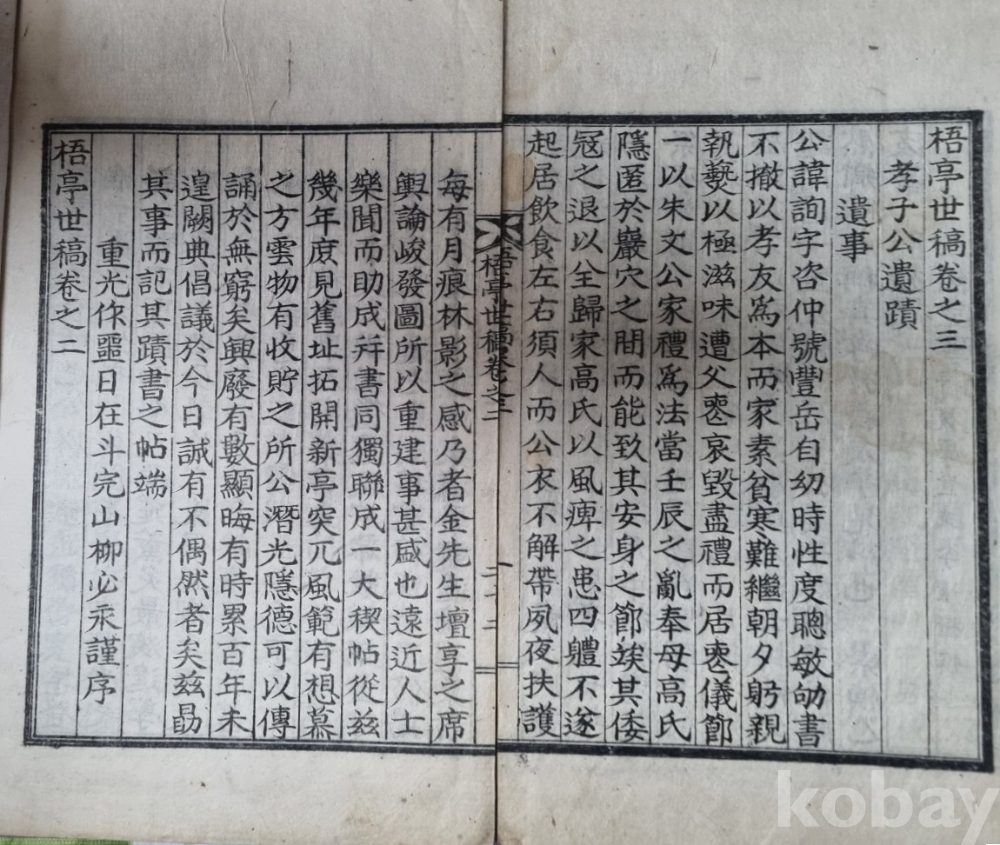 梧亭世稿卷之三
孝子公遺蹟
遺事
公諱詢字咨仲號豐岳自幼時性度聰敏劬書
不撤以孝友爲本而家素貧寒難繼朝夕躬親
執爨以極滋味遭父喪哀毀盡禮而居喪儀節
一以朱文公家禮爲法當壬辰之亂奉母高氏
隱匿於巖穴之間而能致其安身之節竢其倭
冦之退以全歸家高氏以風痺之患四軆不遂
起居飮食左右須人而公衣不解帶夙夜扶護
梧亭世稿卷之二
每有月痕林影之感乃者金先生壇享之席
輿論峻發圖所以重建事甚盛也遠近人士
樂聞而助成幷書同獨聯成一大稧帖從玆
幾年度見舊址拓開新亭突兀風範有想慕
之方雲物有收貯之所公潛光隱德可以傳
誦於無窮矣興廢有數顯晦有時累百年未
遑闕典倡議於今日誠有不偶然者矣玆勗
其事而記其蹟書之帖端
重光作噩日在斗完山柳必永謹序
梧亭世稿卷之二
kobay